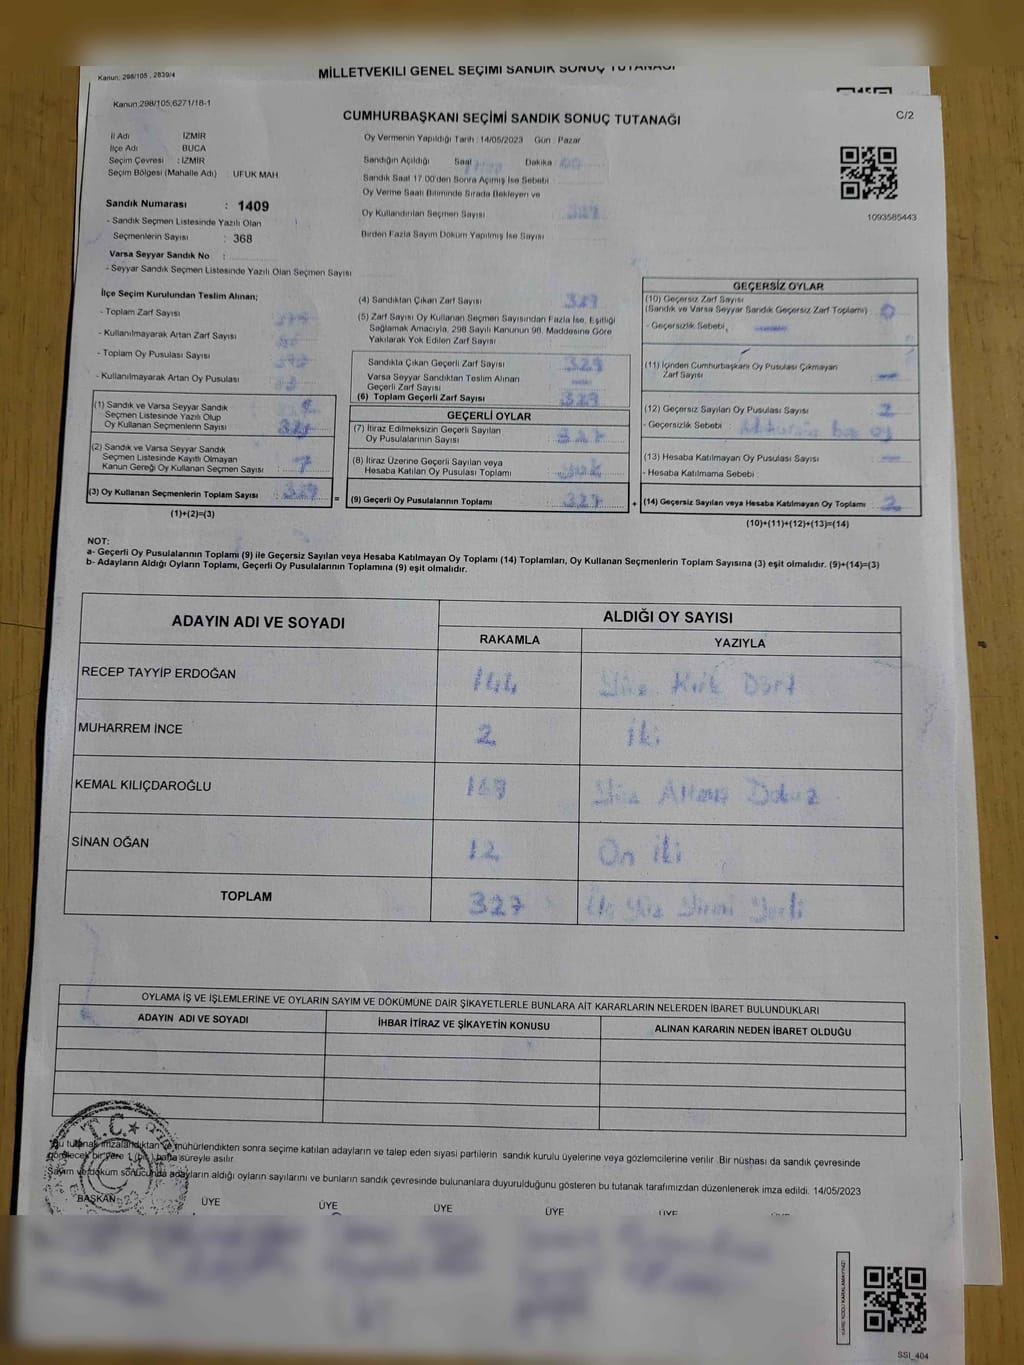 Kanun; 298/105 , 2839/4
MİLLETVEKİLİ GENEL SEÇİMİ SANDIK SONUÇ TUTANAĞI
Kanun;298/105,6271/18-1
CUMHURBAŞKANI SEÇİMİ SANDIK SONUÇ TUTANAĞI
C/2
İl Adı İZMİR
İlçe Adı BUCA
Seçim Çevresi : İZMİR
Seçim Bölgesi (Mahalle Adı) : UFUK MAH.
Oy Vermenin Yapıldığı Tarih : 14/05/2023 Gün : Pazar
Sandığın Açıldığı Saat Dakika
Sandık Saat 17.00'den Sonra Açımış İse Sebebi
Oy Verme Saati Bitiminde Sırada Bekleyen ve
Oy Kullandırılan Seçmen Sayısı 329
Birden Fazla Sayım Döküm Yapılmış İse Sayısı
1093585443
Sandık Numarası : 1409
- Sandık Seçmen Listesinde Yazılı Olan
Seçmenlerin Sayısı : 368
Varsa Seyyar Sandık No :
- Seyyar Sandık Seçmen Listesinde Yazılı Olan Seçmen Sayısı
İlçe Seçim Kurulundan Teslim Alınan;
- Toplam Zarf Sayısı
- Kullanılmayarak Artan Zarf Sayısı
- Toplam Oy Pusulası Sayısı
- Kullanılmayarak Artan Oy Pusulası
(1) Sandık ve Varsa Seyyar Sandık
Seçmen Listesinde Yazılı Olup
Oy Kullanan Seçmenlerin Sayısı
(2) Sandık ve Varsa Seyyar Sandık
Seçmen Listesinde Kayıtlı Olmayan
Kanun Gereği Oy Kullanan Seçmen Sayısı
(3) Oy Kullanan Seçmenlerin Toplam Sayısı : 329
(1)+(2)=(3)
(4) Sandıktan Çıkan Zarf Sayısı 329
(5) Zarf Sayısı Oy Kullanan Seçmen Sayısından Fazla İse, Eşitliği
Sağlamak Amacıyla, 298 Sayılı Kanunun 98. Maddesine Göre
Yakılarak Yok Edilen Zarf Sayısı
Sandıkta Çıkan Geçerli Zarf Sayısı 329
Varsa Seyyar Sandıktan Teslim Alınan
Geçerli Zarf Sayısı —
(6) Toplam Geçerli Zarf Sayısı 329
GEÇERLİ OYLAR
(7) İtiraz Edilmeksizin Geçerli Sayılan
Oy Pusulalarının Sayısı : 327
(8) İtiraz Üzerine Geçerli Sayılan veya
Hesaba Katılan Oy Pusulası Toplamı : Yok
= (9) Geçerli Oy Pusulalarının Toplamı : 327
GEÇERSİZ OYLAR
(10) Geçersiz Zarf Sayısı
(Sandık ve Varsa Seyyar Sandık Geçersiz Zarf Toplamı) : 0
- Geçersizlik Sebebi —
(11) İçinden Cumhurbaşkanı Oy Pusulası Çıkmayan
Zarf Sayısı —
(12) Geçersiz Sayılan Oy Pusulası Sayısı : 2
- Geçersizlik Sebebi : boş oy
(13) Hesaba Katılmayan Oy Pusulası Sayısı : —
- Hesaba Katılmama Sebebi :
+ (14) Geçersiz Sayılan veya Hesaba Katılmayan Oy Toplamı : 2
(10)+(11)+(12)+(13)=(14)
NOT:
a- Geçerli Oy Pusulalarının Toplamı (9) ile Geçersiz Sayılan veya Hesaba Katılmayan Oy Toplamı (14) Toplamları, Oy Kullanan Seçmenlerin Toplam Sayısına (3) eşit olmalıdır. (9)+(14)=(3)
b- Adayların Aldığı Oyların Toplamı, Geçerli Oy Pusulalarının Toplamına (9) eşit olmalıdır.
ADAYIN ADI VE SOYADI
ALDIĞI OY SAYISI
RAKAMLA YAZIYLA
RECEP TAYYİP ERDOĞAN 144 Yüz Kırk Dört
MUHARREM İNCE 2 İki
KEMAL KILIÇDAROĞLU 169 Yüz Altmış Dokuz
SİNAN OĞAN 12 On İki
TOPLAM 327 Üç Yüz Yirmi Yedi
OYLAMA İŞ VE İŞLEMLERİNE VE OYLARIN SAYIM VE DÖKÜMÜNE DAİR ŞİKAYETLERLE BUNLARA AİT KARARLARIN NELERDEN İBARET BULUNDUKLARI
ADAYIN ADI VE SOYADI İHBAR İTİRAZ VE ŞİKAYETİN KONUSU ALINAN KARARIN NEDEN İBARET OLDUĞU
T.C.
Bu tutanak imzalandıktan ve mühürlendikten sonra seçime katılan adayların ve talep eden siyasi partilerin sandık kurulu üyelerine veya gözlemcilerine verilir. Bir nüshası da sandık çevresinde
görülecek bir yere 1 (bir) hafta süreyle asılır.
Sayım ve döküm sonucunda adayların aldığı oyların sayılarını ve bunların sandık çevresinde bulunanlara duyurulduğunu gösteren bu tutanak tarafımızdan düzenlenerek imza edildi. 14/05/2023
BAŞKAN ÜYE ÜYE ÜYE ÜYE ÜYE ÜYE
SSI_404